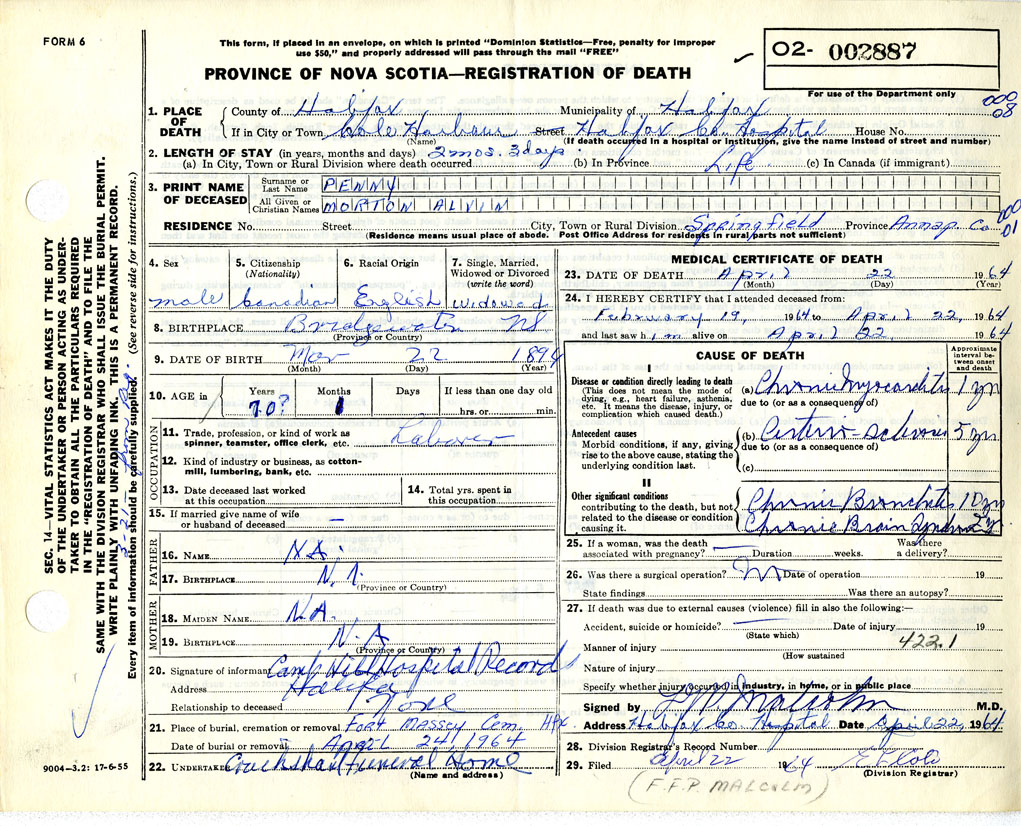 FORM 6
This form, if placed in an envelope, on which is printed "Dominion Statistics—Free, penalty for improper
use $50," and properly addressed will pass through the mail "FREE"
PROVINCE OF NOVA SCOTIA—REGISTRATION OF DEATH
02- 002887
For use of the Department only
000
08
1. PLACE OF DEATH County of Halifax Municipality of Halifax
If in City or Town Cole Harbour Street Halifax Co. Hospital House No.
(Name) (If death occurred in a hospital or institution, give the name instead of street and number)
2. LENGTH OF STAY (in years, months and days) 2 mos. 3 days.
(a) In City, Town or Rural Division where death occurred (b) In Province Life (c) In Canada (if immigrant)
3. PRINT NAME OF DECEASED Surname or Last Name PENNY
All Given or Christian Names MORTON ALVIN
000
01
RESIDENCE No. Street City, Town or Rural Division Springfield Province Annap Co
(Residence means usual place of abode. Post Office Address for residents in rural parts not sufficient)
4. Sex male
5. Citizenship (Nationality) Canadian
6. Racial Origin English
7. Single, Married, Widowed or Divorced (write the word) Widowed
8. BIRTHPLACE Bridgewater NS
(Province or Country)
9. DATE OF BIRTH Mar 22 1894
(Month) (Day) (Year)
10. AGE in Years 70? Months 1 Days If less than one day old
hrs. or min.
OCCUPATION
11. Trade, profession, or kind of work as spinner, teamster, office clerk, etc. Laborer
12. Kind of industry or business, as cotton-mill, lumbering, bank, etc.
13. Date deceased last worked at this occupation
14. Total yrs. spent in this occupation
15. If married give name of wife or husband of deceased —
FATHER
16. NAME N.A.
17. BIRTHPLACE
(Province or Country)
MOTHER
18. MAIDEN NAME N.A.
19. BIRTHPLACE N.A
(Province or Country)
20. Signature of informant Camp Hill Hospital Records
Address Halifax
Relationship to deceased None
21. Place of burial, cremation or removal FORT MASSEY Cem. HFX
Date of burial or removal APRIL 24, 1964
22. UNDERTAKER Cruikshank Funeral Home
(Name and address)
9004-3.2: 17-6-55
MEDICAL CERTIFICATE OF DEATH
23. DATE OF DEATH April 22 1964
(Month) (Day) (Year)
24. I HEREBY CERTIFY that I attended deceased from:
February 19, 1964 to April 22, 1964
and last saw him alive on April 22 1964
CAUSE OF DEATH
Approximate interval between onset and death
I
Disease or condition directly leading to death
(This does not mean the mode of dying, e.g., heart failure, asthenia, etc. It means the disease, injury, or complication which caused death.)
(a) Chronic Myocarditis 1 yr
due to (or as a consequence of)
Antecedent causes
Morbid conditions, if any, giving rise to the above cause, stating the underlying condition last.
(b) 5 yr
due to (or as a consequence of)
(c)
II
Other significant conditions
contributing to the death, but not related to the disease or condition causing it.
Chronic Bronchitis 10 yr
Chronic Brain Syndrome 2 yr
25. If a woman, was the death associated with pregnancy? Duration weeks. Was there a delivery?
26. Was there a surgical operation? No Date of operation 19
State findings Was there an autopsy?
27. If death was due to external causes (violence) fill in also the following:—
Accident, suicide or homicide? Date of injury 19
(State which)
422.1
Manner of injury
(How sustained
Nature of injury
Specify whether injury occurred in industry, in home, or in public place
Signed by Malcolm M.D.
Address Halifax Co. Hospital Date April 22, 1964
28. Division Registrar's Record Number
29. Filed April 22 1964
(Division Registrar)
(F.F.P. MALCOLM)
SEC. 14—VITAL STATISTICS ACT MAKES IT THE DUTY
OF THE UNDERTAKER OR PERSON ACTING AS UNDER-
TAKER TO OBTAIN ALL THE PARTICULARS REQUIRED
IN THE "REGISTRATION OF DEATH" AND TO FILE THE
SAME WITH THE DIVISION REGISTRAR WHO SHALL ISSUE THE BURIAL PERMIT.
WRITE PLAINLY WITH UNFADING INK. THIS IS A PERMANENT RECORD.
Every item of information should be carefully supplied. (See reverse side for instructions.)